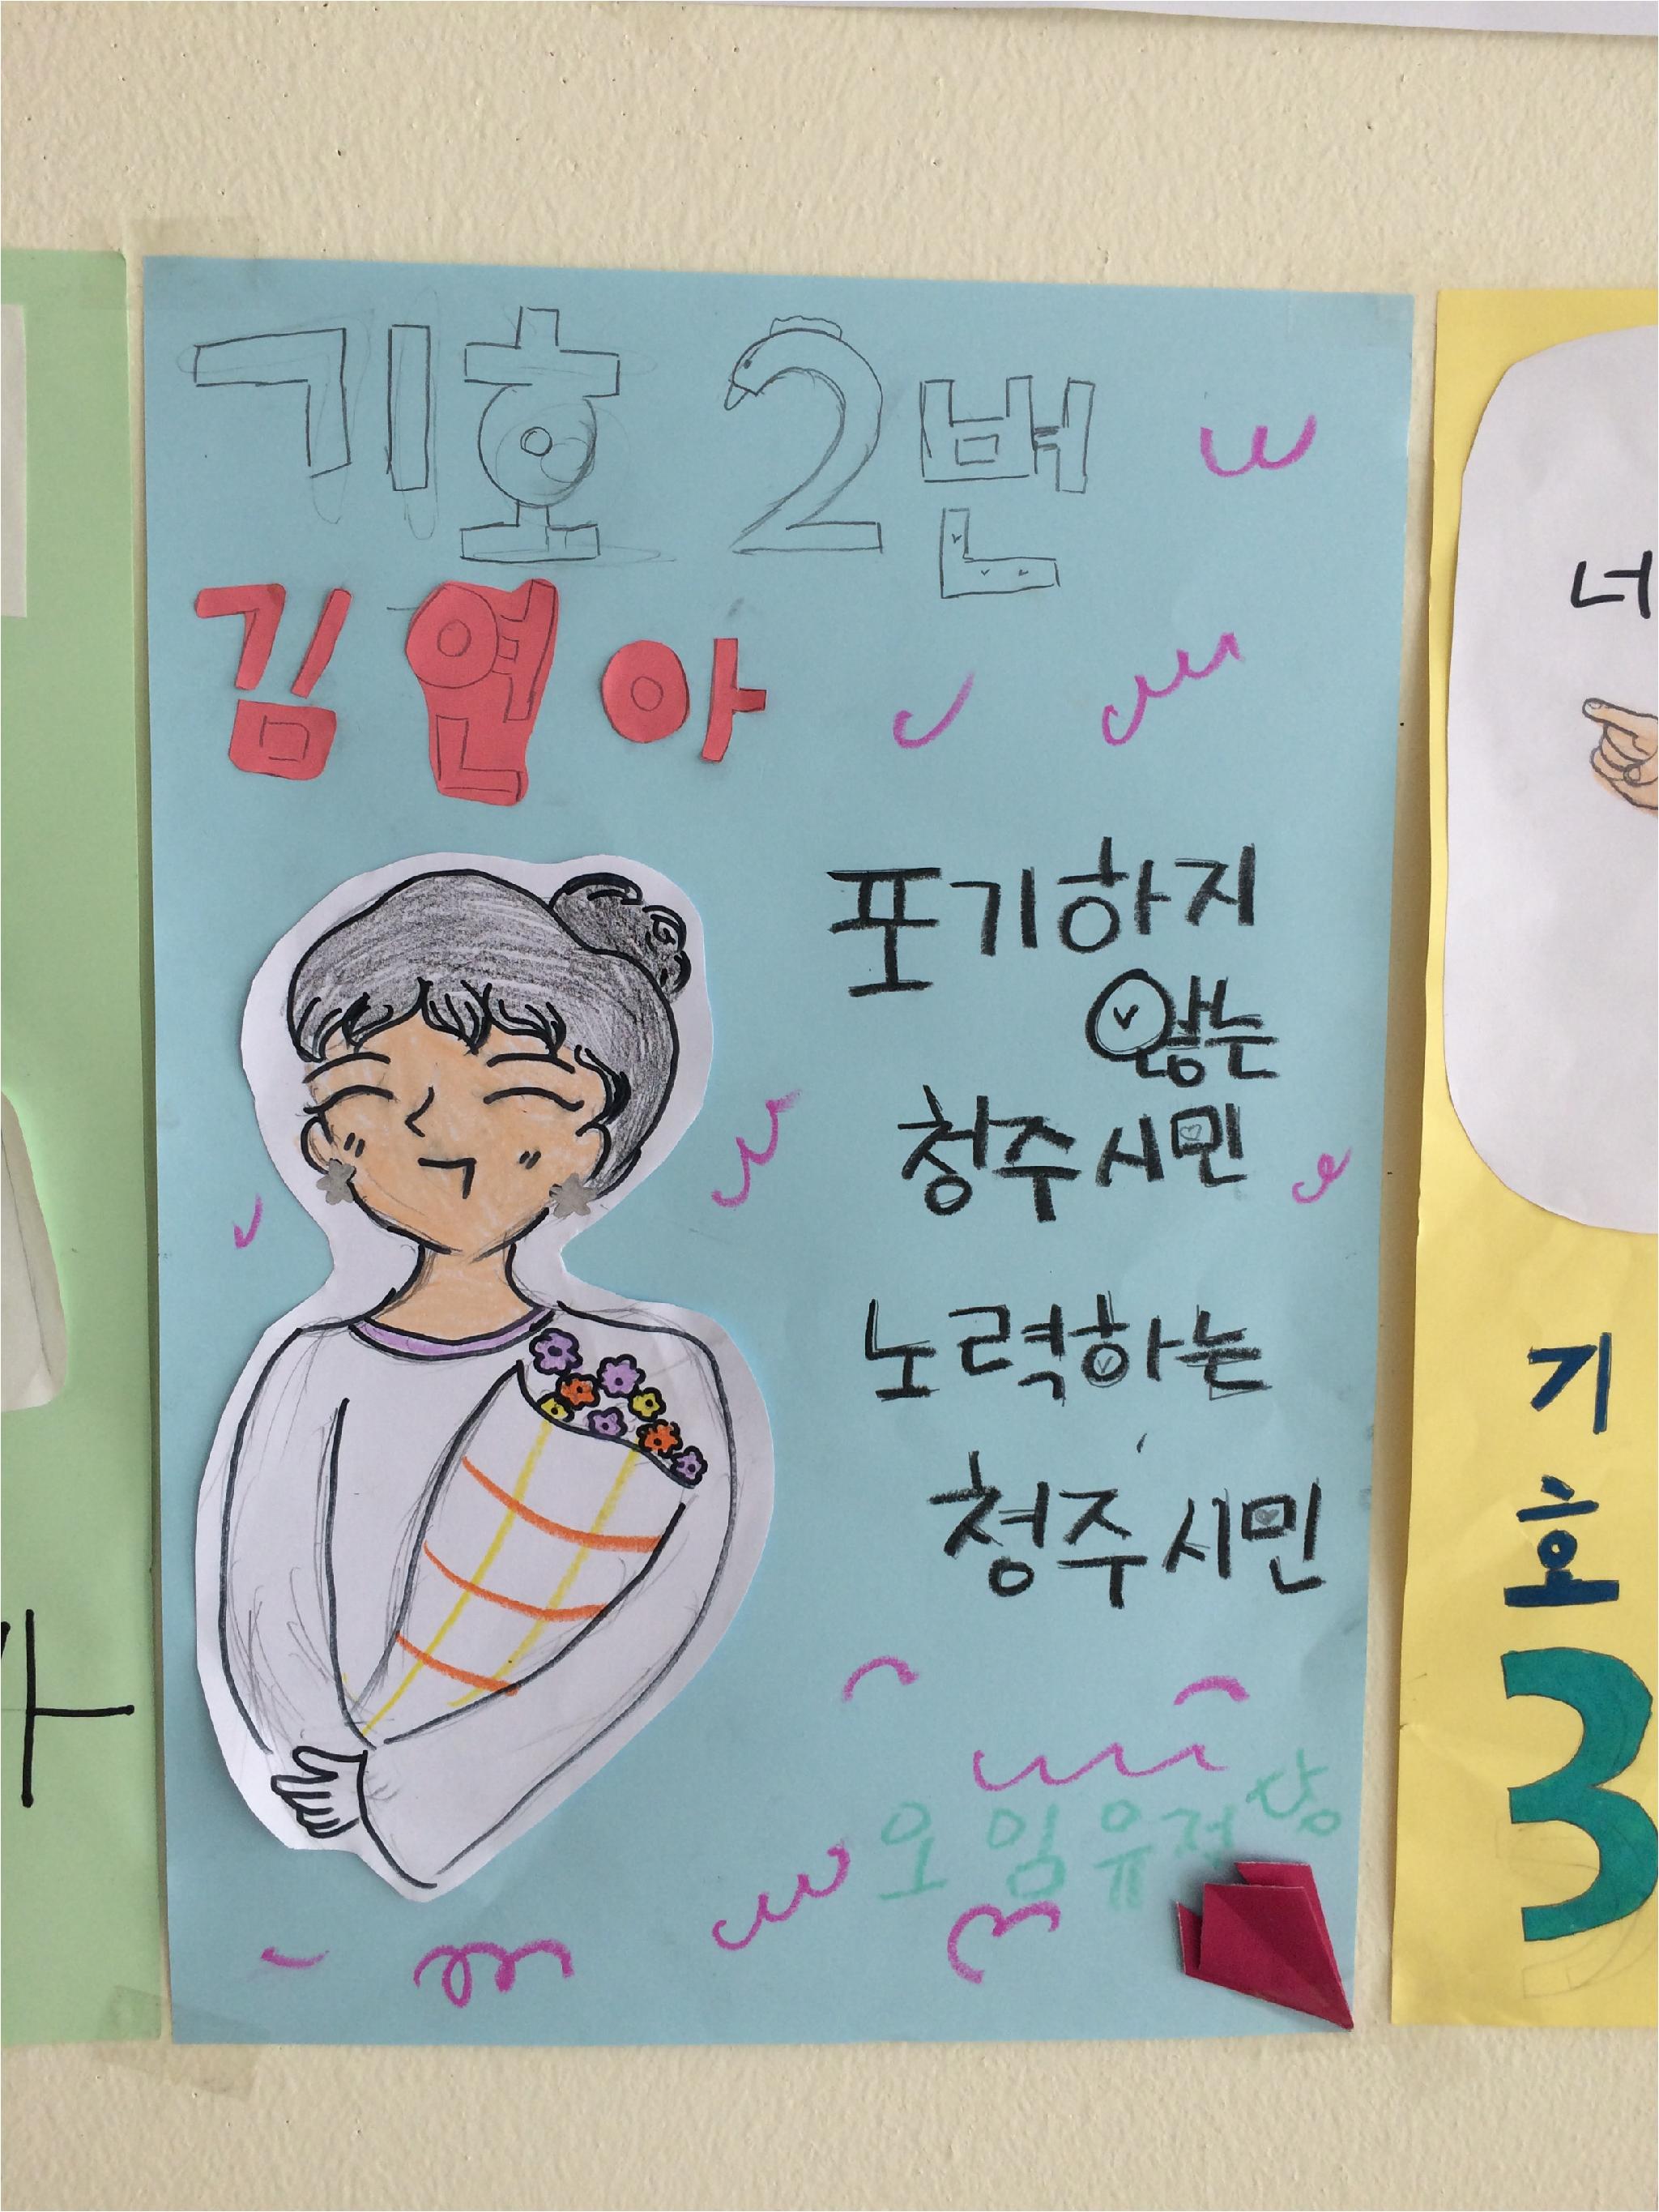 기호 2번
김연아
포기하지
않는
청주시민
노력하는
청주시민
너
기
호
3